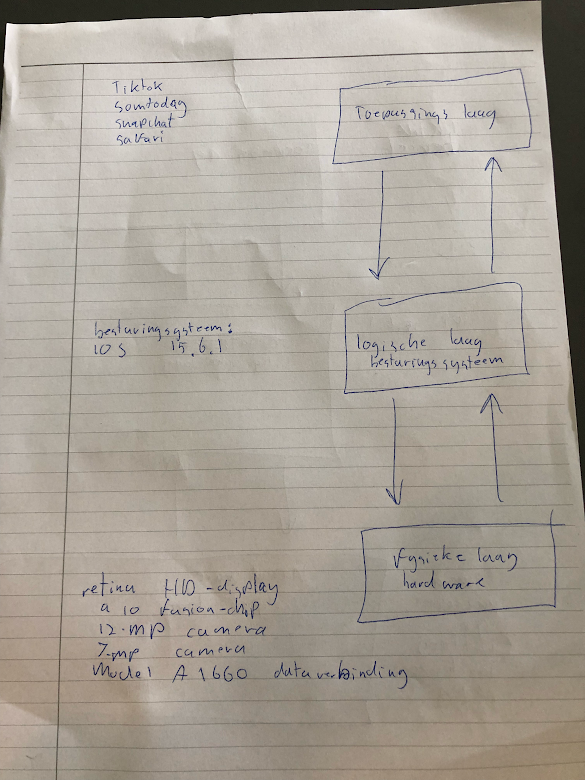 Tiktok
somtoday
snapchat
safari
Toepassings laag
besturingsysteem:
iOS 15.6.1
logische laag
besturingssysteem
fysieke laag
hardware
retina HD-display
a 10 fusion-chip
12-mp camera
7-mp camera
Model A1660 dataverbinding